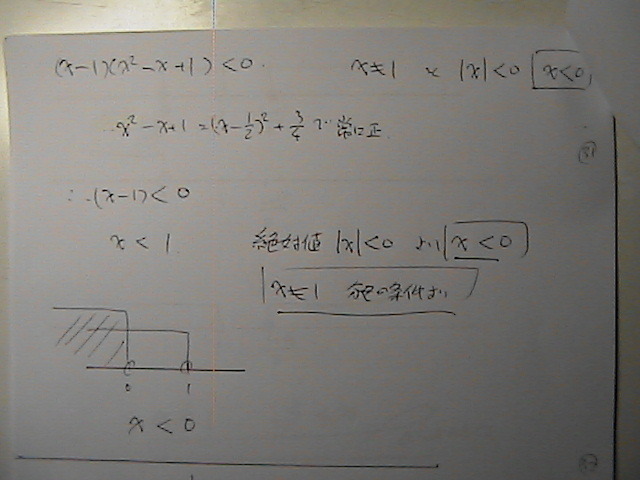 (x-1)(x²-x+1)<0. x≠1 |x|<0 x<0
x²-x+1=(x-1/2)²+3/4 で 常に正
∴(x-1)<0
x<1
絶対値 |x|<0 より x<0
x≠1 分母の条件より
0 1
x<0